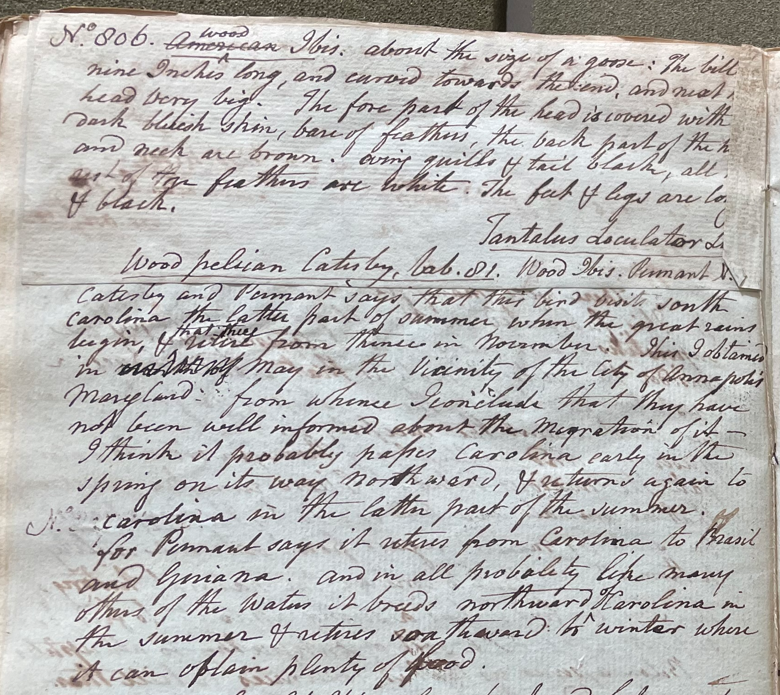 No. 806. American wood Ibis. about the size of a goose: The bill
nine Inches long, and curved towards the end, and neat
head very big. The fore part of the head is covered with
dark bluish skin, bare of feathers, the back part of the h
and neck are brown. wing quills & tail black, all
rest of the feathers are white. The feet & legs are lo
& black.
Tantalus Loculator L
Wood pelican Catesby, tab. 81. Wood Ibis. Pennant
Catesby and Pennant says that this bird visits south
carolina the latter part of summer, when the great rains
begin, & that these retire from thence in November. This I obtained
in May in the Vicinity of the City of Annapolis
Maryland: from whence I conclude that they have
not been well informed about the Migration of it—
I think it probably passes Carolina early in the
spring on its way northward, & returns again to
No. carolina in the latter part of the summer.
for Pennant says it retires from Carolina to Brasil
and Guiana. and in all probality like many
others of the Waters it breeds northward of Karolina in
the summer & retires southward to winter where
it can obtain plenty of food.